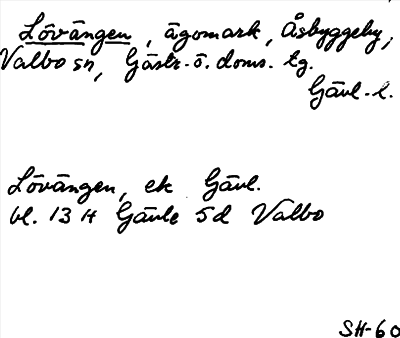 Lövängen, ägomark, Åsbyggeby,
Valbo sn, Gästr.ö. doms. tg.
Gävl. l.
Lövängen, ek Gävl.
bl. 13 H Gävle 5d Valbo
SH-60